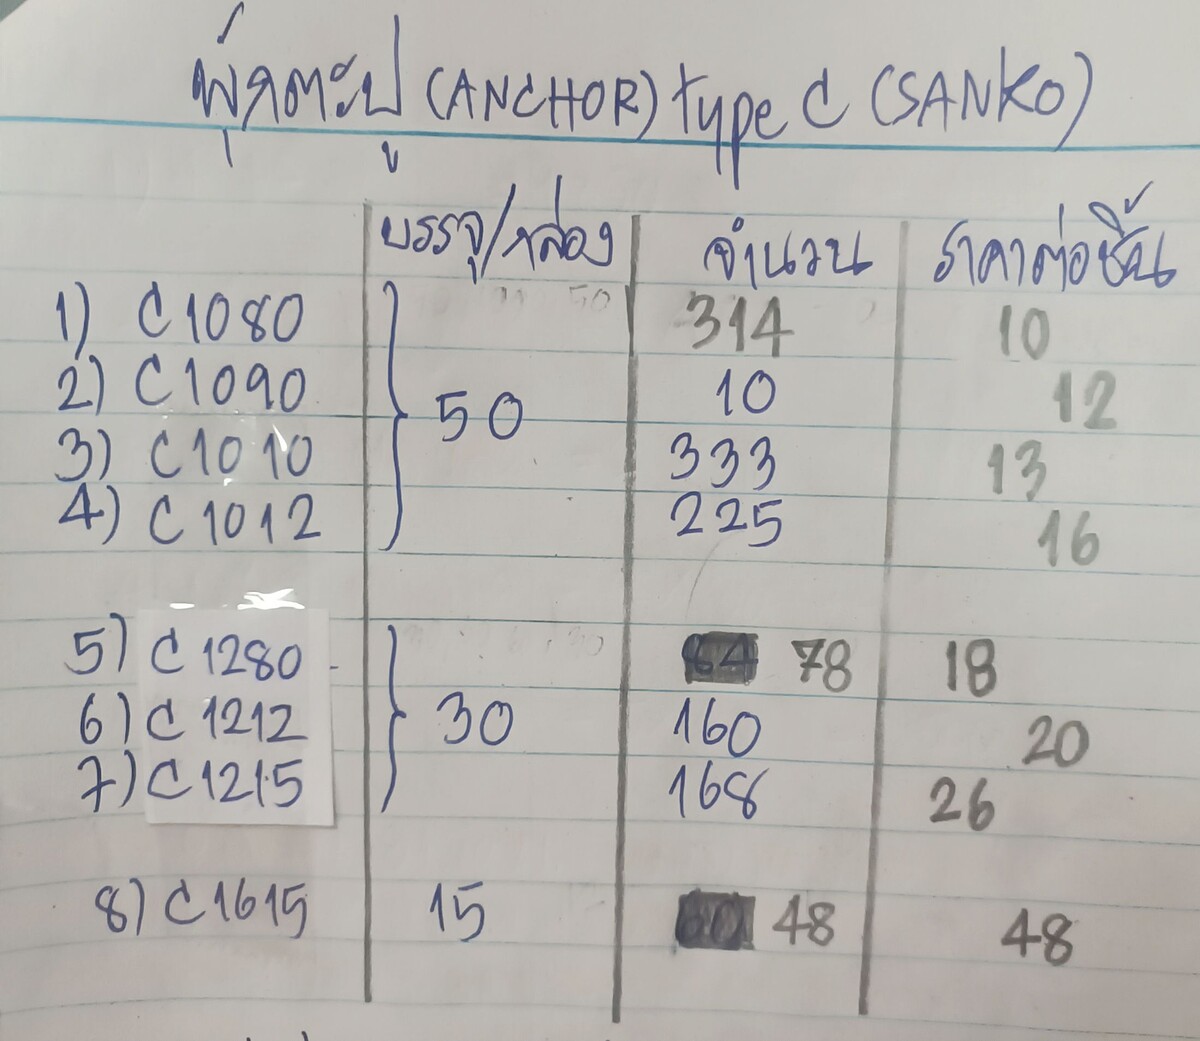 พุ๊กตะปู (ANCHOR) type C (SANKO)
บรรจุ/กล่อง จำนวน ราคาต่อชิ้น
1) C1080 314 10
2) C1090 10 12
50
3) C1010 333 13
4) C1012 225 16
5) C1280 78 18
6) C1212 30 160 20
7) C1215 168 26
8) C1615 15 48 48